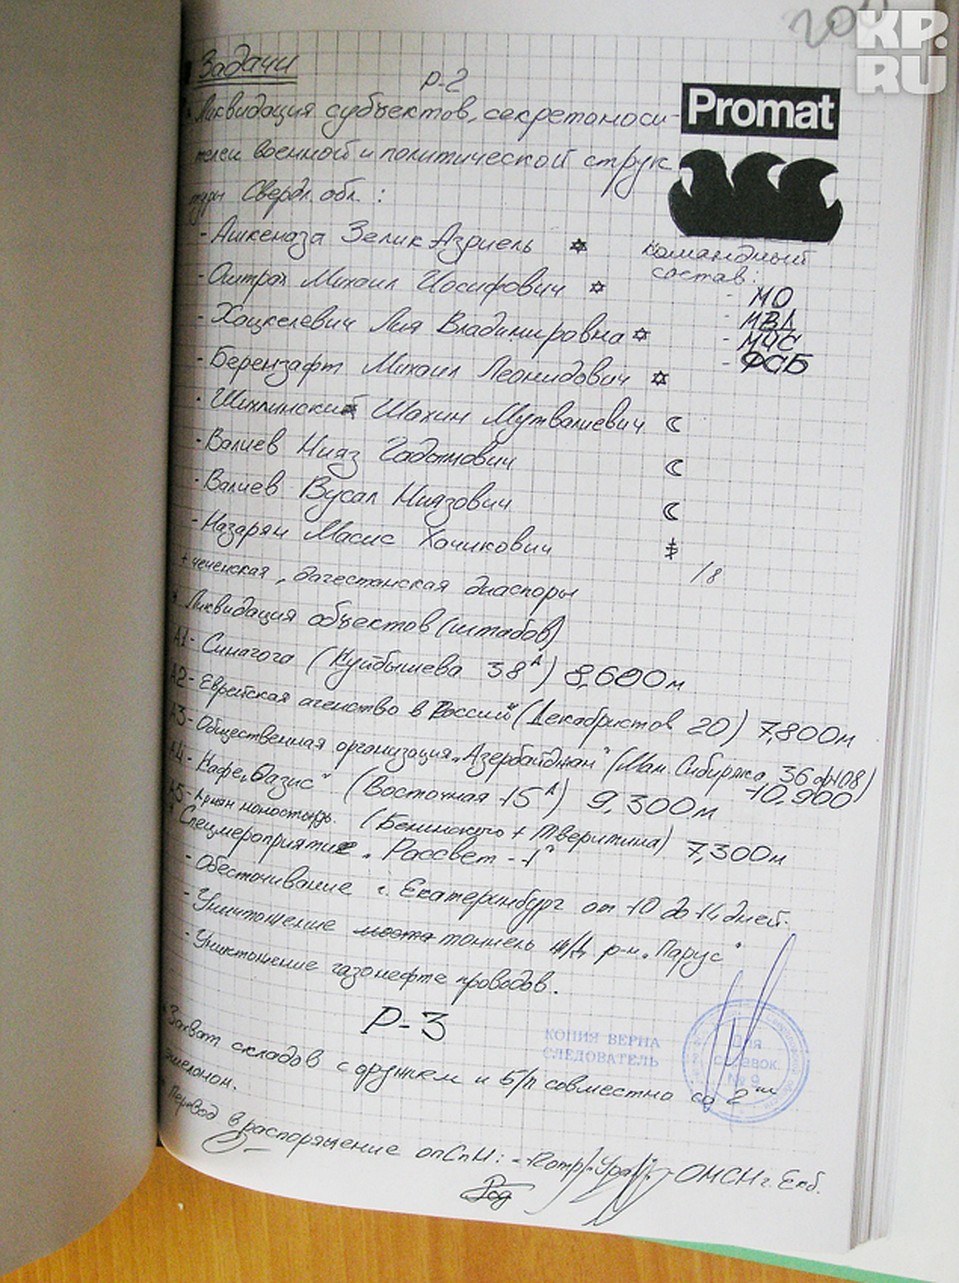 KP.
RU
Задачи
Р-2
Promat
Ликвидация субъектов, секретоноси-
телей военной и политической струк
туры Свердл. обл.:
- Ашкеназа Зелик Азриель ✡
- Оштрах Михаил Иосифович ✡
- Хацкелевич Лия Владимировна ✡
- Берензафт Михаил Леонидович ✡
- Шихлинский Шахин Мутвалиевич ☾
- Валиев Нияз Гадымович ☾
- Валиев Вусал Ниязович ☾
- Назарян Масис Хачикович
/8
командный
состав:
- МО
- МВД
- МЧС
- ФСБ
+ чеченская, дагестанская диаспоры
Ликвидация объектов (штабов)
А1- Синагога (Куйбышева 38ᴬ) 8,600м
А2- Еврейская агенство в России" (Декабристов 20) 7,800м
А3- Общественная организация „Азербайджан" (Мам. Сибиряка 36 оф 108)
10,900
А4- Кафе „Оазис" (Восточная 15ᴬ) 9,300м
А5- (Белинского + Тверитина) 7,300м
Спецмероприятие „Рассвет-1"
- Обесточивание г. Екатеринбург от 10 до 14 дней.
- Уничтожение тоннель ж/д р-н „Парус"
- Уничтожение газонефте проводов.
Р-3
КОПИЯ ВЕРНА
СЛЕДОВАТЕЛЬ
Для
справок
№ 9
Захват складов с оружием и б/п совместно со 2ым
эшелоном.
Перевод в распоряжение опСпН: ОМСН г. Екб.